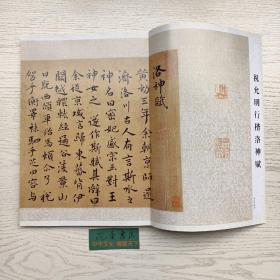 祝允明行楷洛神賦
洛神賦
黃初三年余朝京師還
濟洛川古人有言斯水之
神名曰宓妃感宋玉對王
神女之事遂作斯賦其辭曰
余從京域言歸東藩背伊
闕越轘轅經通谷陵景山
日既西傾車殆馬煩尔乃税
駕乎蘅皋秣駟乎芝田容与